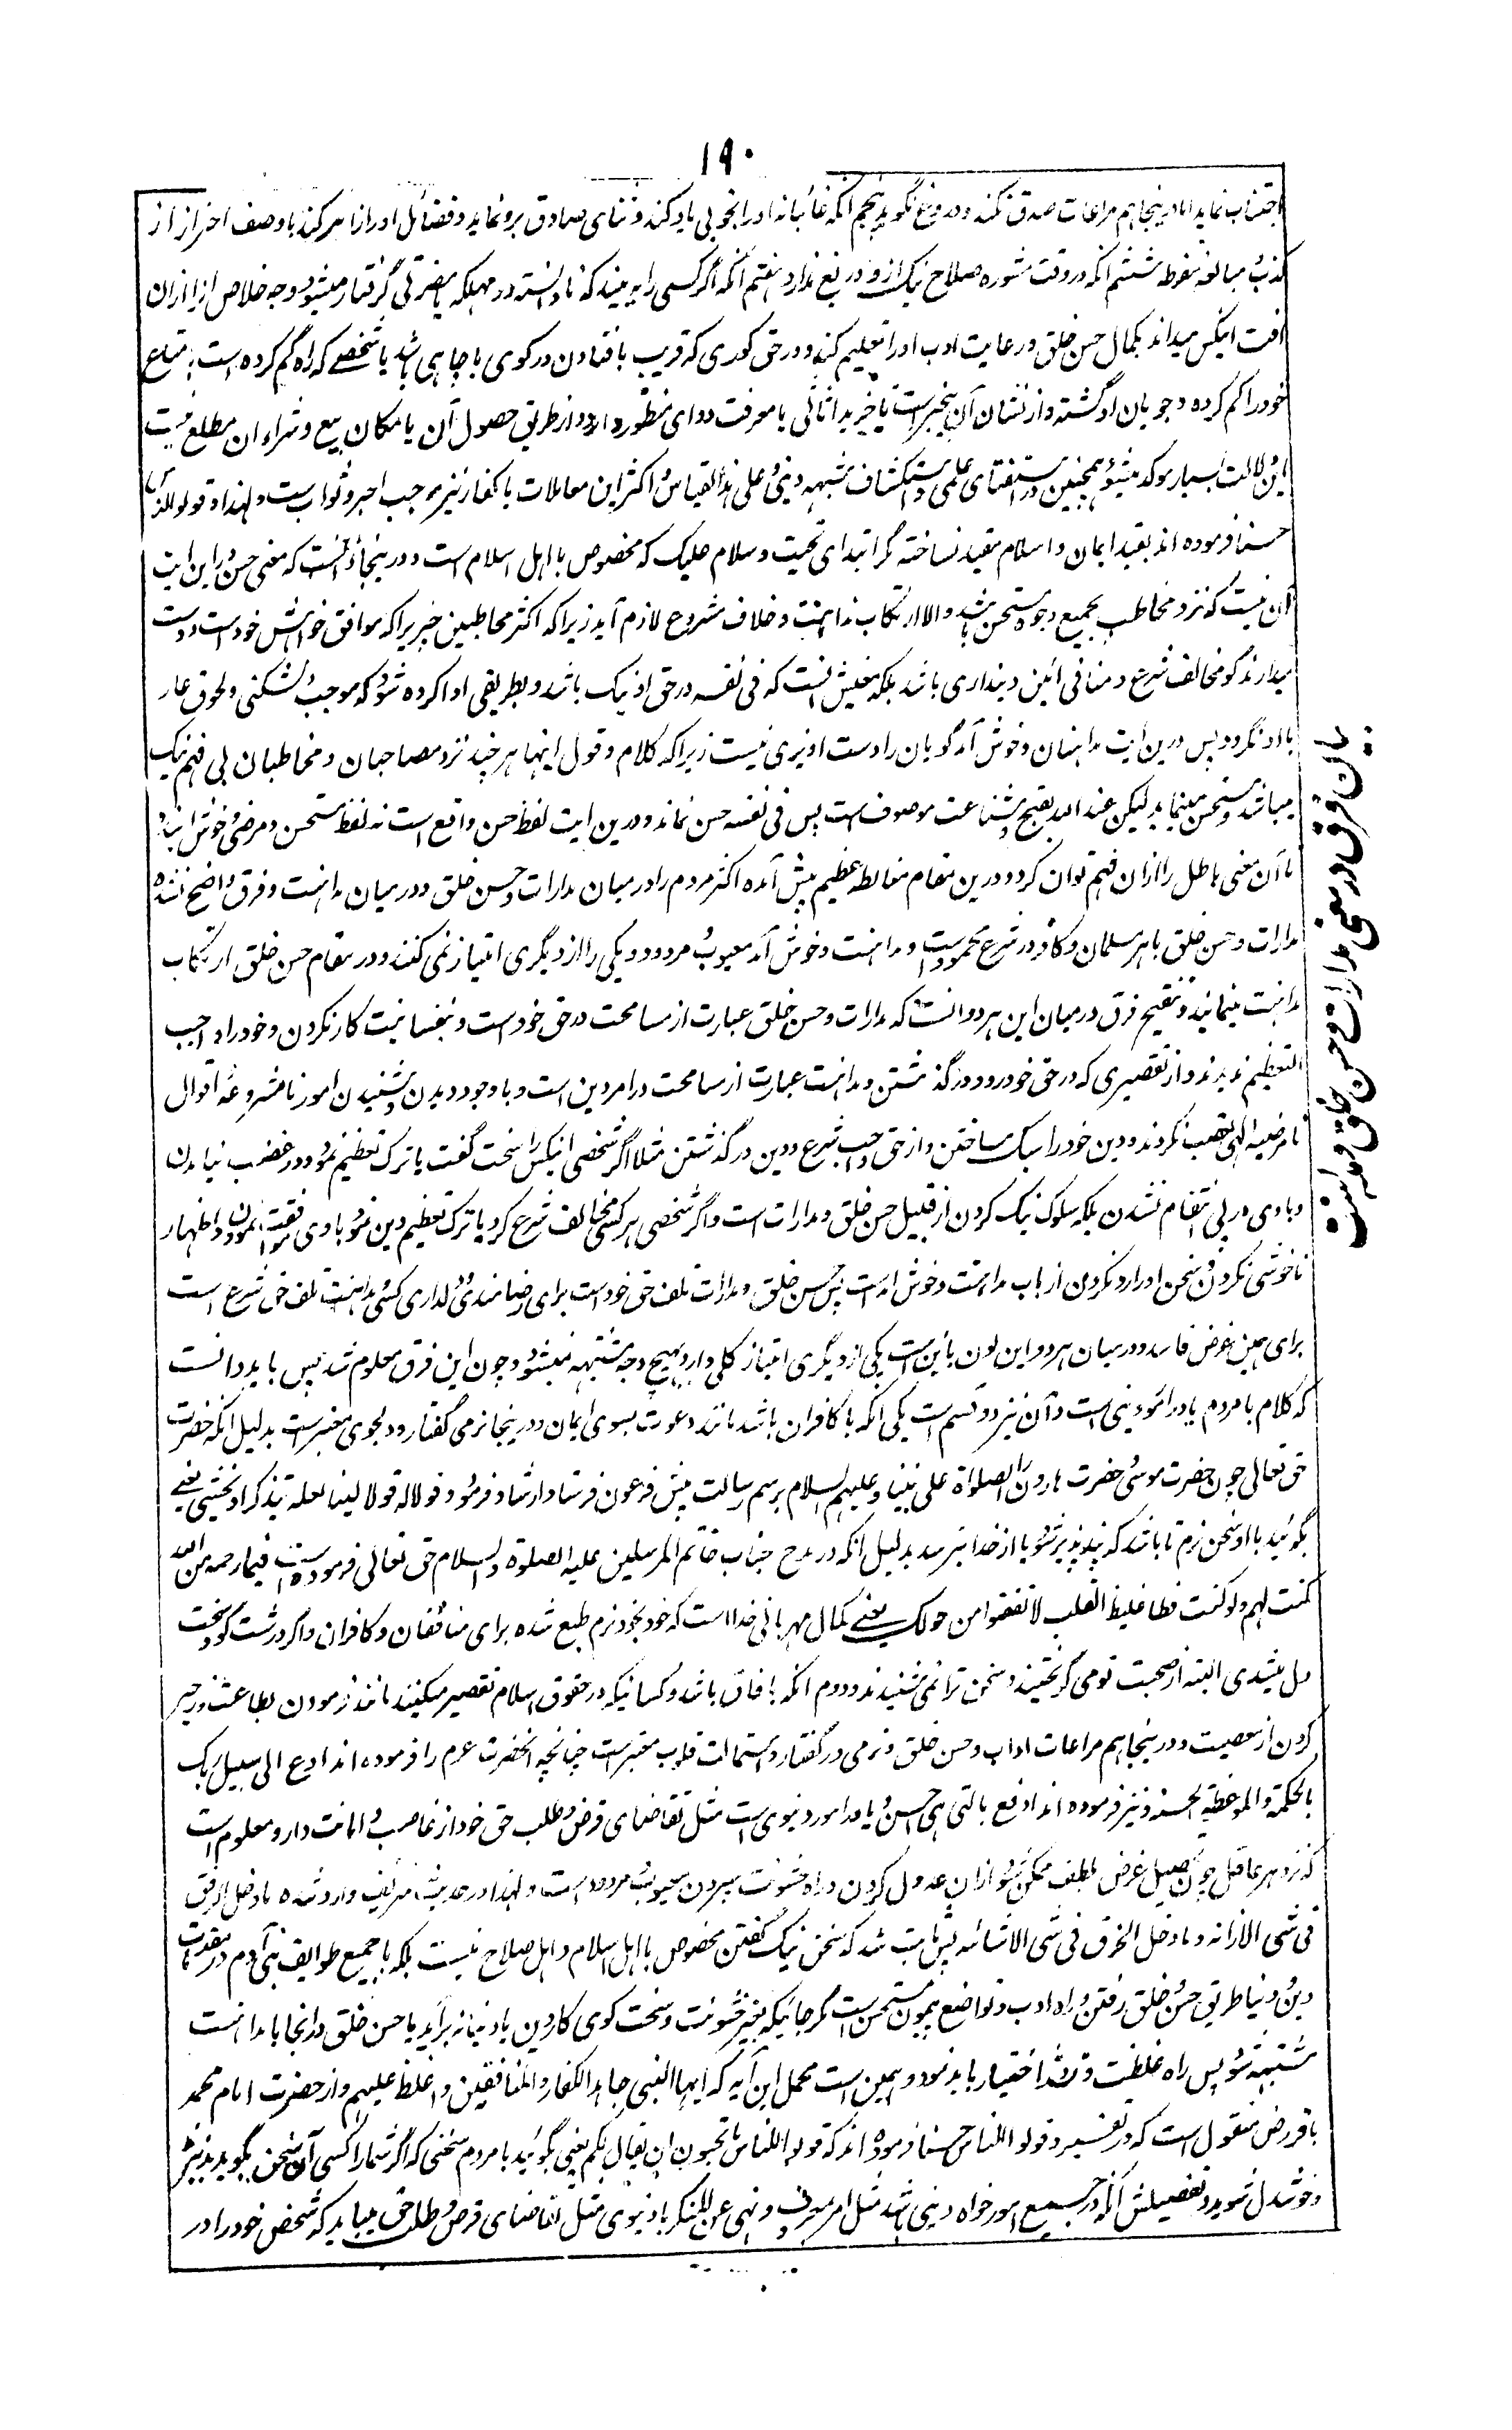 ۱۹۰
اجتناب نماید اما درینجا هم مراعات صدق نکند و دروغ نگوید پنجم آنکه غائبانه او را بخوبی یاد کند و ثنای صادق برو نماید و فضائل او را ظاهر کند با وصف احتراز از
کذب و مبالغه مفرط ششم آنکه در وقت مشوره صلاح نیک ازو دریغ ندارد هفتم آنکه اگر کسی را به بیند که نادانسته در مهلکه یا مضرتی گرفتار میشود و وجه خلاص او را ازان
آفت اینکس میداند بکمال حسن خلق و رعایت ادب او را تعلیم کند و در حق کوری که قریب بافتادن در کوی یا چاهی باشد یا شخصی که راه گم کرده است یا متاع
خود را گم کرده و جویان او گشته و از نشان آن بیخبر است یا خرید اثاثی یا معرفت دوای منظور دارد و از طریق حصول آن یا مکان بیع و شراء آن مطلع نیست
این دلالت بسیار موکد میشود همچنین در استفتای علمی و استکشاف شبهه دینی و علی هذا القیاس و اکثر این معاملات با کفار نیز موجب اجر و ثواب است و لهذا و قولوا للناس
حسنا فرموده اند بقید ایمان و اسلام مقید نساخته مگر ابتدای تحیت و سلام علیک که مخصوص با اهل اسلام است و درینجا دانست که معنی حسن در این آیت
آن نیست که نزد مخاطب بجمیع وجوه مستحسن باشد و الا ارتکاب مداهنت و خلاف مشروع لازم آید زیرا که اکثر مخاطبین چیزیرا که موافق خواهش خود است دوست
میدارند گو مخالف شرع و منافی آئین دینداری باشد بلکه معنیش آنست که فی نفسه در حق او نیک باشد و بطریقی ادا کرده شود که موجب دلشکنی و لحوق عار
با او نگردد پس درین آیت مداهنان و خوش آمد گویان را دست آویزی نیست زیرا که کلام و قول اینها هر چند نزد مصاحبان و مخاطبان بی فهم نیک
میباشد و مستحسن مینماید لیکن عند الله بقبح و شناعت موصوف است پس فی نفسه حسن نماند و درین آیت لفظ حسن واقع است نه لفظ مستحسن و مرضی و خوش آینده
تا آن معنی باطل را ازان فهم توان کرد و درین مقام مغالطه عظیم پیش آمده اکثر مردم را در میان مدارات و حسن خلق و در میان مداهنت و فرق واضح نشده
مدارات و حسن خلق با هر مسلمان و کافر در شرع محمود است و مداهنت و خوش آمد معیوب و مردود و یکی را از دیگری امتیاز نمی کنند و در مقام حسن خلق ارتکاب
مداهنت مینمایند و تنقیح فرق در میان این هر دو آنست که مدارات و حسن خلق عبارت از مسامحت در حق خود است و بنفسانیت کار نکردن و خود را واجب
التعظیم ندیدند و از تقصیری که در حق خود رود در گذشتن و مداهنت عبارت از مسامحت در امر دین است و با وجود دیدن و شنیدن امور نامشروعه و اقوال
نامرضیه الهی تعصب نکردند و دین خود را سبک ساختن و از حق واجب شرع و دین در گذشتن مثلا اگر شخصی اینکس را سخت گفت یا ترک تعظیم نمود در غضب نیامدن
و با وی در پی انتقام نشدن بلکه سلوک نیک کردن از قبیل حسن خلق و مدارات است و اگر شخصی هر کسی مخالف شرع کرد یا ترک تعظیم دین نمود با وی موافقت نمودن و اظهار
ناخوشی نکردن و سخن او را رد نکردن از باب مداهنت و خوش آمد است پس حسن خلق و مدارات تلف حق خود است برای رضامندی و دلداری کسی و مداهنت تلف حق شرع است
برای همین غرض فاسد و در میان هر دو این لون باین است یکی از دیگری امتیاز کلی دارد بهیچ وجه مشتبه نمیشود و چون این فرق معلوم شد پس باید دانست
که کلام با مردم یا در امور دینی است و آن نیز دو قسم است یکی آنکه با کافران باشد مانند دعوت بسوی ایمان و درینجا نرمی گفتار و دلجوی معتبر است بدلیل آنکه حضرت
حق تعالی چون حضرت موسی و حضرت هارون را علی نبینا و علیهم الصلواة و السلام برسم رسالت پیش فرعون فرستاد ارشاد فرمود و قولا له قولا لینا لعله یتذکر او یخشی یعنی
بگوئید با او سخن نرم تا باشد که پندپذیر شود یا از خدا بترسد بدلیل آنکه در مدح جناب خاتم المرسلین علیه الصلوة و السلام حق تعالی فرموده است فبما رحمة من الله
لنت لهم و لو کنت فظا غلیظ القلب لانفضوا من حولک یعنی کمال مهربانی خدا است که خود بخود نرم طبع شده برای منافقان و کافران و اگر درشت گو و سخت
دل میشدی البته از صحبت تو می گریختند و سخن ترا نمی شنیدند و دوم آنکه با فاق باشد و کسانیکه در حقوق اسلام تقصیر میکنند مانند فرمودن بطاعت و زجر
کردن از معصیت و درینجا هم مراعات آداب و حسن خلق و نرمی در گفتار و استمالت قلوب معتبر است چنانچه آنحضرت صلعم را فرموده اند ادع الی سبیل ربک
بالحکمة و الموعظة الحسنة و نیز فرموده اند ادفع بالتی هی احسن و یا در امور دنیوی است مثل تقاضای قرض و طلب حق خود از غاصب و امانت دار و معلوم است
که نزد هر عاقل چون تحصیل غرض بلطف ممکن شود ازان عدول کردن و راه خشونت سپردن معیوب و مردود است و لهذا در حدیث شریف وارد شده ما دخل الرفق
فی شی الا زانه و ما دخل الخرق فی شی الا شانه پس ثابت شد که سخن نیک گفتن مخصوص با اهل اسلام و اهل صلاح نیست بلکه با جمیع طوایف بنی آدم در مقدمات
دین و دنیا طریق حسن خلق رفتن و راه ادب و تواضع پیمودن مستحسن است مگر جائیکه بغیر خشونت و سخت گوی کار دین یا دنیا نه برآید یا حسن خلق در آنجا با مداهنت
مشتبه شود پس راه غلظت و تشدد اختیار باید نمود و همین است محمل این آیه که ایها النبی جاهد الکفار و المنافقین و اغلظ علیهم و از حضرت امام محمد
باقر رض منقول است که در تفسیر و قولوا للناس حسنا فرموده اند که قولوا للناس ما تحبون ان یقال لکم یعنی بگوئید با مردم سخنی که اگر شما را کسی آن سخن بگوید پذیر
و خوشدل شوید و تفصیلش آنکه در جمیع امور خواه دینی باشد مثل امر معروف و نهی عن المنکر یا دنیوی مثل تقاضای قرض و طلب حق میباید که شخص خود را در
بیان فرق در معنی مدارات و حسن خلق و مداهنت